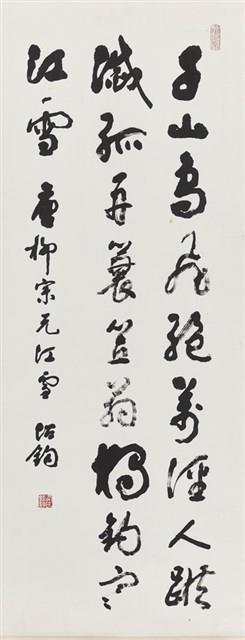 千山鳥飛絕萬徑人蹤
滅孤舟簑笠翁獨釣寒
江雪 唐柳宗元江雪